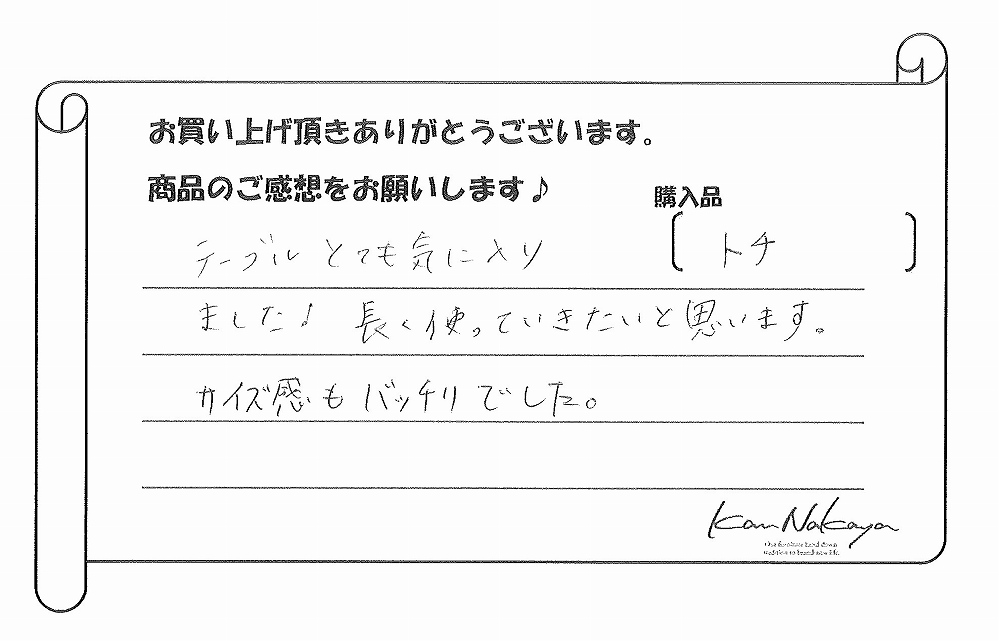 お買い上げ頂きありがとうございます。
商品のご感想をお願いします♪
購入品
トチ
テーブルとても気に入り
ました! 長く使っていきたいと思います。
サイズ感もバッチリでした。
Kan Nakaya